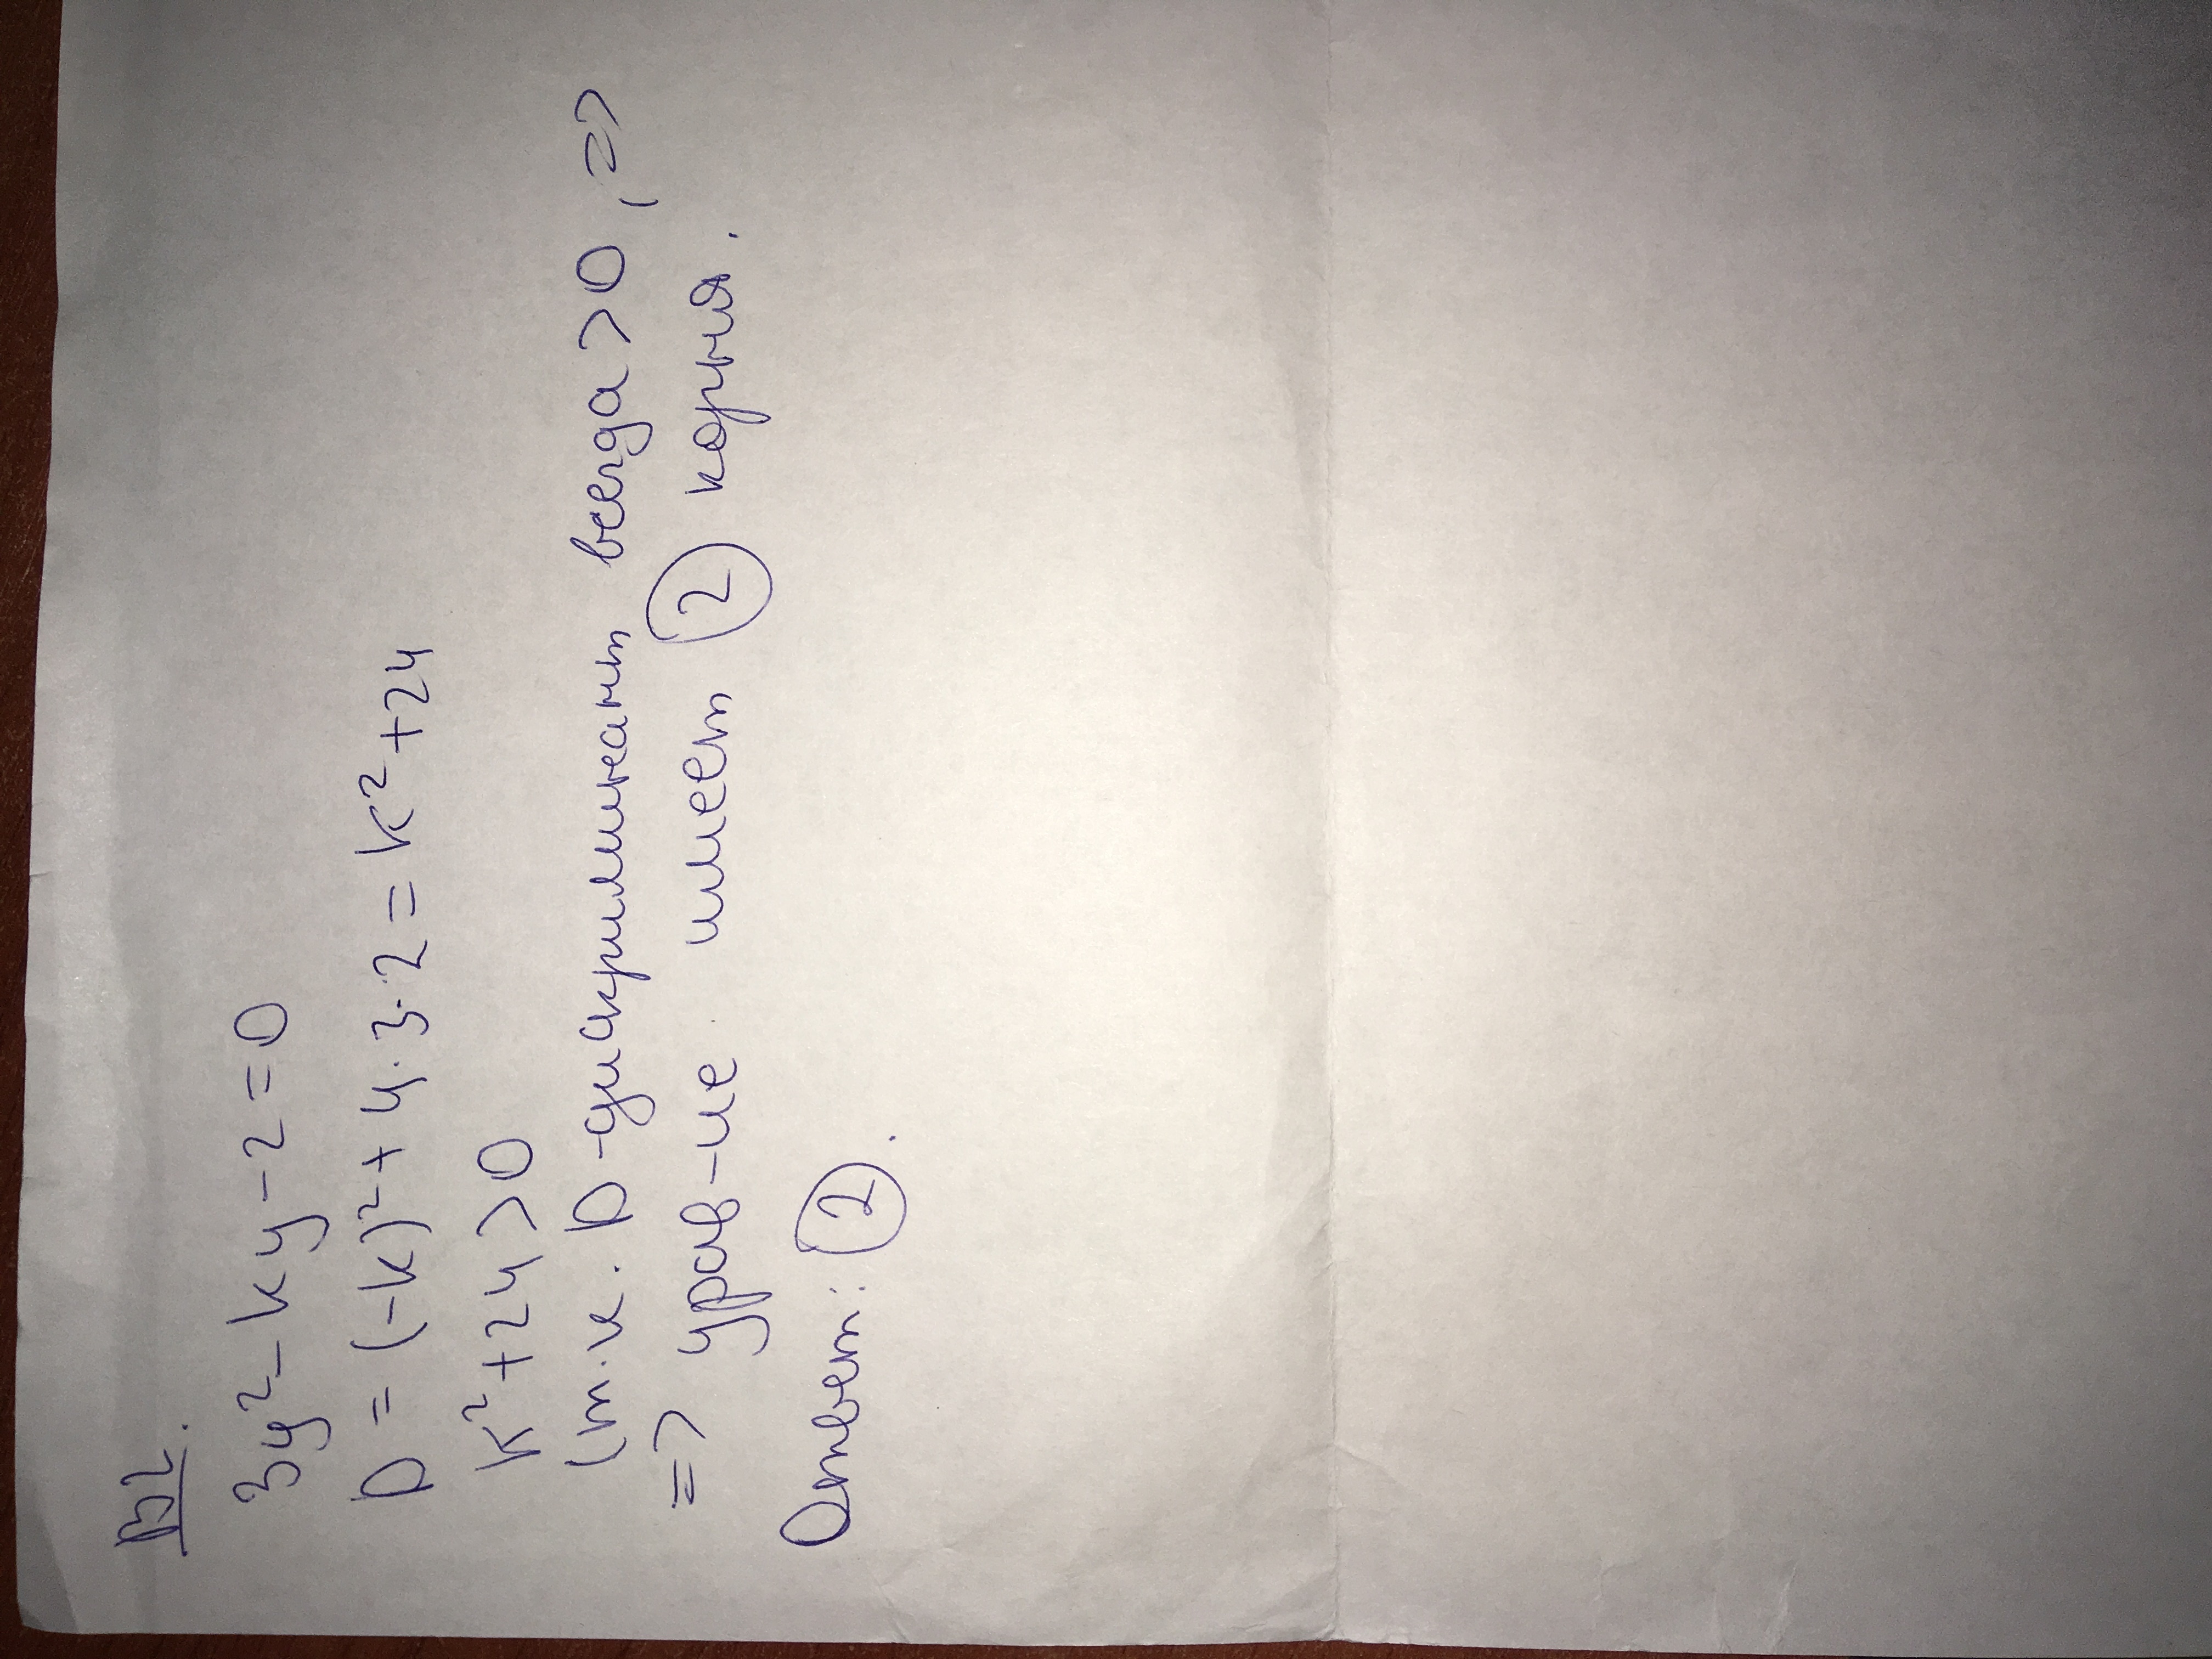 №2.
3y²-ky-2=0
D=(-k)²+4·3·2=k²+24
k²+24>0
(т.к. D-дискриминант всегда>0, =>
=> урав-ие имеет 2 корня.
Ответ: 2.